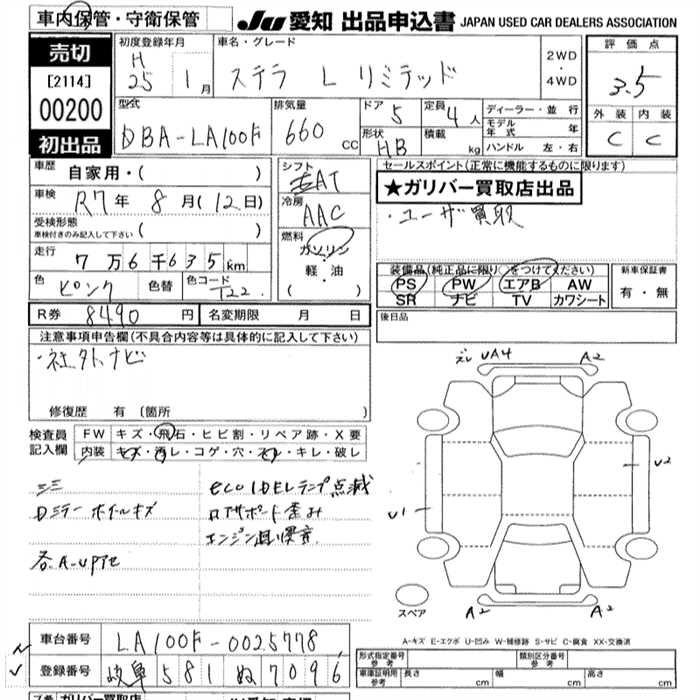 車内保管・守衛保管
JU 愛知 出品申込書 JAPAN USED CAR DEALERS ASSOCIATION
売切
[2114]
00200
初出品
初度登録年月
H
25 1 月
車名・グレード
ステラ L リミテッド
2WD
・
4WD
評価点
3.5
外装 内装
C C
型式
DBA-LA100F
排気量
660 CC
ドア 5
定員 4 人
形状 HB
積載 kg
ディーラー・並行
モデル年式 年
ハンドル 左・右
車歴 自家用・( )
車検 R7 年 8 月 (12 日)
受検形態
車検付きのみ記入して下さい ( )
走行 7 万 6 千 635 km
色 ピンク 色替 色コード T22
シフト
AT
冷房
AAC
燃料
ガソリン
軽・油
( )
セールスポイント(正常に機能するものに限ります)
★ガリバー買取店出品
・ユーザー買取
装備品(純正品に限り○をつけてください)
PS PW エアB AW
SR ナビ TV カワシート
新車保証書
有・無
R券 8490 円 名変期限 月 日
後日品
注意事項申告欄(不具合内容等は具体的に記入して下さい)
・社外ナビ
修復歴 有 (箇所
検査員
記入欄
FW キズ・飛石・ヒビ割・リペア跡・X要
内装 キズ・汚レ・コゲ・穴・スレ・キレ・破レ
ミミ
Dミラー ホイールキズ
各A・UPアセ
eco IDELランプ点滅
ロアサポート歪み
UA4 A2
U2
U1
A2 A2
スペア
A-キズ E-エクボ U-凹み W-補修跡 S-サビ C-腐食 XX-交換済
車台番号 LA100F-0025778
登録番号 岐阜 581 ぬ 7096
形式指定番号
参考
類別区分番号
参考
車庫証明用
参考
長さ cm 幅 cm 高さ cm
ガリバー買取店